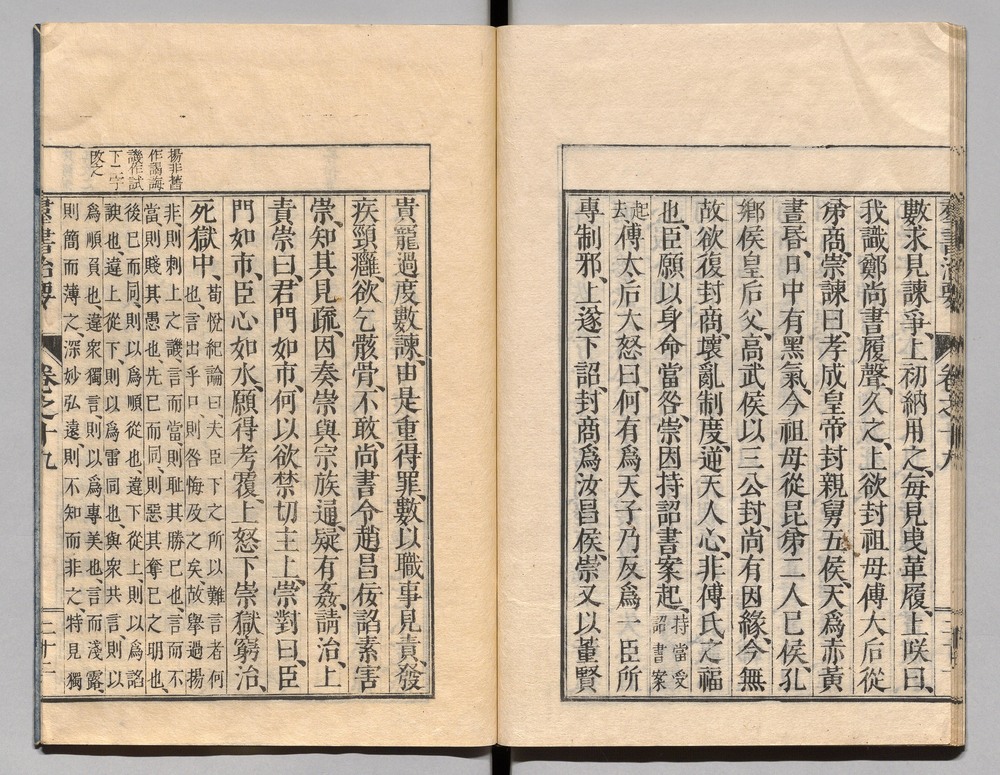 數求見諫爭、上初納用之、每見曳革履、上咲曰、
我識鄭尚書履聲、久之、上欲封祖母傅大后從
弟商、崇諫曰、孝成皇帝封親舅五侯、天爲赤黃
晝昏、日中有黑氣、今祖母從昆弟二人已侯、孔
鄉侯皇后父、高武侯以三公封、尚有因緣、今無
故欲復封商、壞亂制度、逆天人心、非傅氏之福
也、臣願以身命當咎、崇因持詔書案起、持當受詔書案
起去傅太后大怒曰、何有爲天子乃反爲一臣所
專制邪、上遂下詔、封商爲汝昌侯、崇又以董賢
貴寵過度數諫、由是重得罪、數以職事見責、發
疾頸癰、欲乞骸骨、不敢、尚書令趙昌佞諂素害
崇、知其見疏、因奏崇與宗族通、疑有姦、請治、上
責崇曰、君門如市、何以欲禁切主上、崇對曰、臣
門如市、臣心如水、願得考覆、上怒下崇獄、窮治、
死獄中、荀悅紀論曰、夫臣下之所以難言者何
也、言出乎口、則咎悔及之矣、故舉過揚
非、則刺上之譏、言而當、則耻其勝己也、言而不
當、則賤其愚也、先己而同、則惡其奪己之明也、
後己而同、則以爲順從也、違下從上、則以爲諂
諛也、違上從下、則以爲雷同也、與衆共言、則以
爲順負也、違衆獨言、則以爲專美也、言而淺露、
則簡而薄之、深妙弘遠、則不知而非之、特見獨
揚非舊
作謁誨
譏作試
下二字
改之
羣書治要
卷之十九
二十二